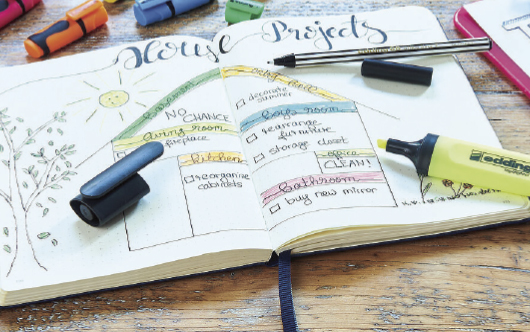 House Projects
NO
CHANCE
decorate
boys room
rearrange
furniture
storage closet
living room
fireplace
kitchen
reorganise
cabinets
office
CLEAN!
bathroom
buy new mirror
edding